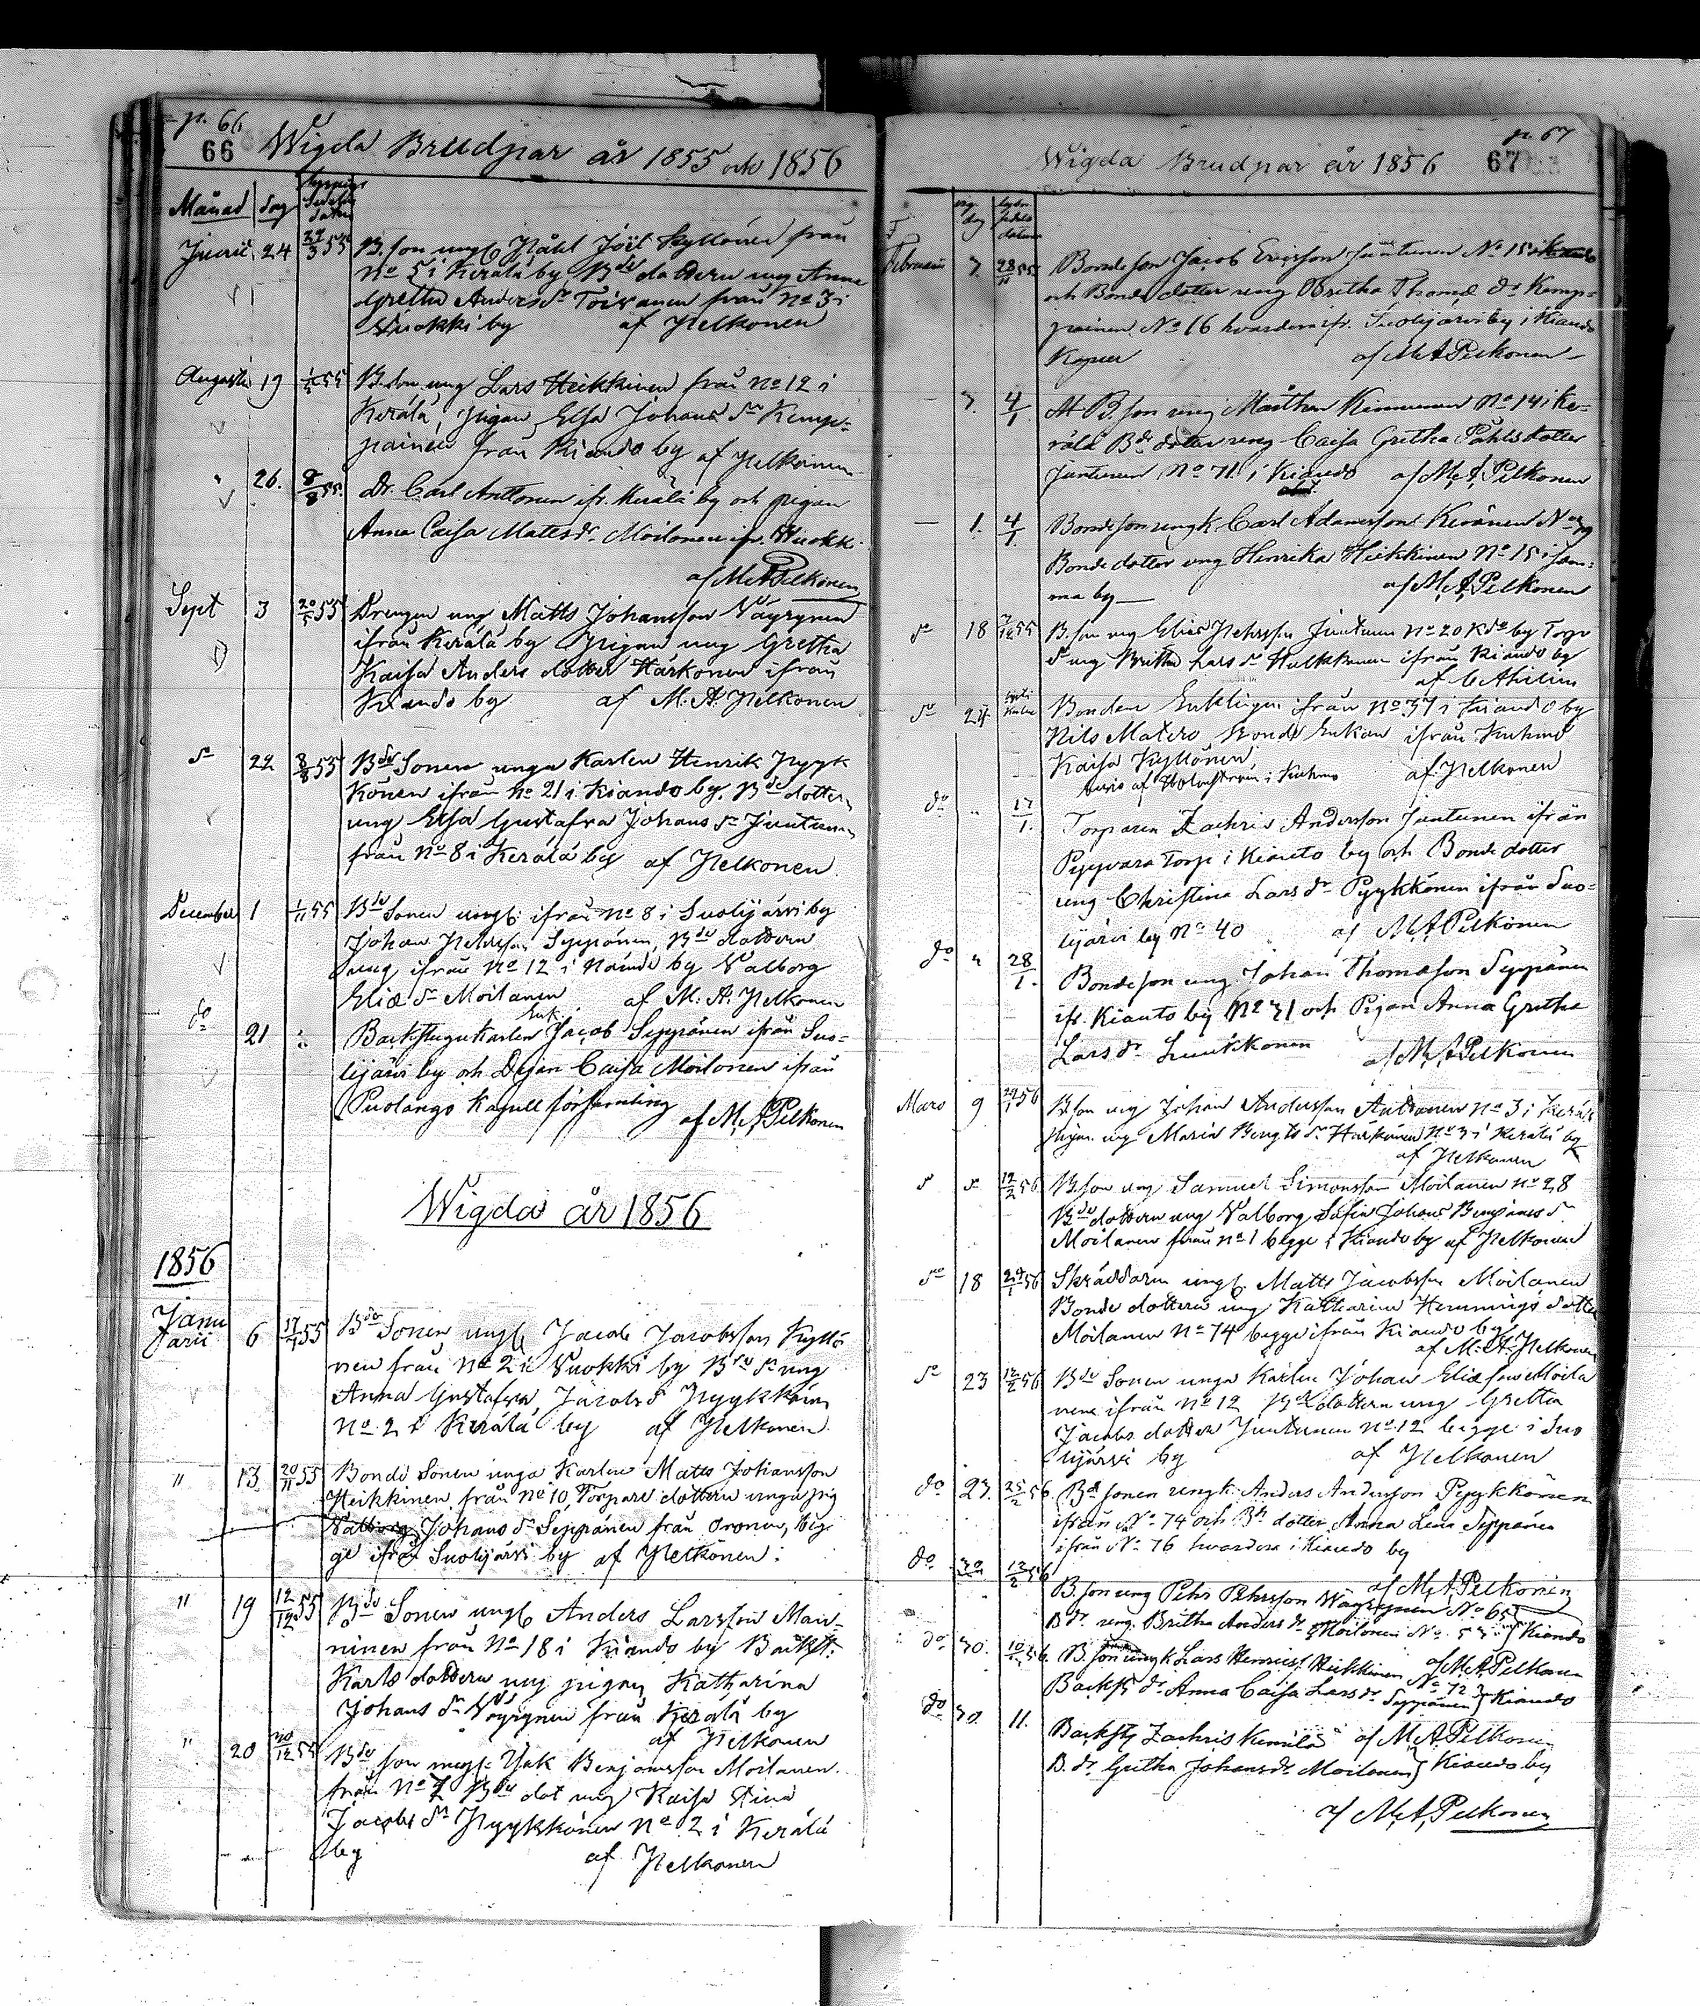 p. 66
66 Wigda Brudpar år 1855 och 1856
Månad dag
Junii 24 55 B. son ungk Påhl Joil Kyllönen från
No 5 i Kerälä by Bde dottern ung Anna
Gretha Anders dr Toivanen från No 3 i
Vuokki by af Pelkonen
Augusti 19 55 B. son ung Lars Heikkinen från No 12 i
Kerälä, Pigan Elsa Johans dr Kemp=
painen från Kiando by af Pelkonen
26. 8/8 55. Dr. Carl Anttonen ifr. Kerälä by och pigan
Anna Caisa Matts dr Moilanen ifr. Wuokki
af M. A. Pelkonen
Sept 3 20/5 55 Drengen ung Matts Johansson Väyrynen
ifrån Kerälä by Pigan ung Gretha
Kaisa Anders dotter Härkönen ifrån
Kiando by af M. A. Pelkonen
do 22 8/8 55 Bde Sonen unga Karlen Henrik Pyyk
könen ifrån No 21 i Kiando by, Bde dottern
ung Elsa Gustafva Johans dr Juntunen
från No 8 i Kerälä by af Pelkonen
December 1 1/11 55 Bde Sonen ungk: ifrån No 8 i Suolijärvi by
Johan Pehrsson Seppänen, Bde dottern
ung ifrån No 12 i Nämde by Valborg
Eliæ dr Moilanen af M. A. Pelkonen
do 21 Backstugukarlen Enk. Jacob Seppänen ifrån Suo=
lijärvi by och Pigan Caisa Moilanen ifrån
Puolango Kapellförsamling af M. A. Pelkonen
Wigda år 1856
1856
Janu
arii 6 55 Bde Sonen ungk Jacob Jacobsson Kyllö
nen från No 2 i Vuokki by Bde dr ung
Anna Gustafva Jacobs dr Pyykkönen
No 2 i Kerälä by af Pelkonen
" 13 20/11 55 Bonde Sonen unga Karlen Matts Johansson
Heikkinen från No 10, Torpare dottern unga pig
Valborg Johans dr Seppänen från Oronen, beg
ge ifrån Suolijärvi by af Pelkonen.
" 19 12/12 55 Bde Sonen ungk Anders Larsson Man=
ninen från No 18 i Kiando by Backst:
Karls dottern ung pigan Katharina
Johans dr Väyrynen från Kerälä by
af Pelkonen
" 20 Bde son ungk: Isak Benjamsson Moilanen
från No 7 Bde dot ung Kaisa Stina
Jacobs dr Pyykkönen No 2 i Kerälä
by af Pelkonen
p. 67
Wigda Brudpar år 1856 67
Februarii 3 28/11 55 Bondeson Jacob Ericsson Juntunen No 15
och Bonde dotter ung Britha Thomæ dr Kemp=
painen No 16 hvardera ifr. Suolijärvi by i Kiando
Kapell af M. A. Pelkonen
3. 4/1 B. son ung Måthen Kinnunen No 14 i Ke=
rälä Bde dotter ung Caisa Gretha Påhlsdotter
Juntunen No 71 i Kiando af M. A. Pelkonen
— 1. 4/1. Bondeson ungk Carl Adamsson Keränen No 29
Bonde dotter ung Henrika Heikkinen No 15 i sam=
ma by — af M. A. Pelkonen
do 18 B. son ung Elias Pehrsson Juntunen No 20 K by Torp
dr ung Britha Lars dr Hulkkonen ifrån Kiando by
af C Ahilin
do 24 Bonden Enklingen ifrån No 37 i Kiando by
Nils Matero Bonde Enkan ifrån Kuhmo
Kaisa Kyllönen, af Pelkonen
i Kuhmo
do " 17/1. Torparen Zachris Andersson Juntunen ifrån
Pyyvara Torp i Kianto by och Bonde dotter
ung Christina Lars dr Pyykkönen ifrån Suo=
lijärvi by No 40 af M. A. Pelkonen
do " 28/1. Bondeson ung Johan Thomasson Seppänen
ifr. Kianto by No 31 och Pigan Anna Gretha
Lars dr Luukkonen af M. A. Pelkonen
Mars 9 56 B. son ung Johan Andersson Anttonen No 3 i Kerälä
Pigan ung Maria Bengts dr Härkönen No 3 i Kerälä by
af Pelkonen
d do 12/2 56 B. son ung Samuel Simonsson Moilanen No 28
Bde dottern ung Valborg Sofia Johans Benjams dr
Moilanen från No 1 begge i Kiando by af Pelkonen
do 18 24/1 56 Skräddaren ungk Matts Jacobsson Moilanen
Bonde dottern ung Katharina Hemmings dotter
Moilanen No 74 begge ifrån Kiando by
af M. A. Pelkonen
do 23 12/2 56 Bde Sonen unga Karlen Johan Eliæson Moila
nen ifrån No 12 Bde dottern ung Gretha
Jacobs dotter Juntunen No 12 begge i Suo
lijärvi by af Pelkonen
do 23. 25/2 56. Bd sonen ungk: Anders Andersson Pyykkönen
ifrån No 74 och Bde dotter Anna Lena Seppänen
ifrån No 76 hvardera i Kiando by
af M. A. Pelkonen
do 30 12/2 56 B. son ung Pehr Pehrsson Wäyrynen No 65
B dr. ung. Britha Anders dr Moilanen No. 53 Kiando
do 30. B. son ungk Lars Henricss. Heikkinen No 72 af M. A. Pelkonen
Backst dr Anna Caisa Lars dr Seppänen Kiando
do 30. 11. Backst Zachris Kemilä af M. A. Pelkonen
B. dr Gretha Johans dr Moilanen } Kiando by
af M. A. Pelkonen